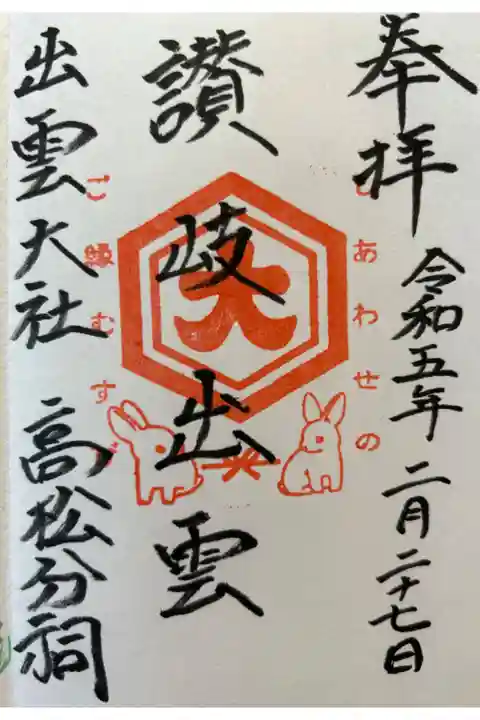 奉拝
令和五年 二月二十七日
しあわせの
讃岐出雲
大
ご縁むすび
出雲大社 高松分祠